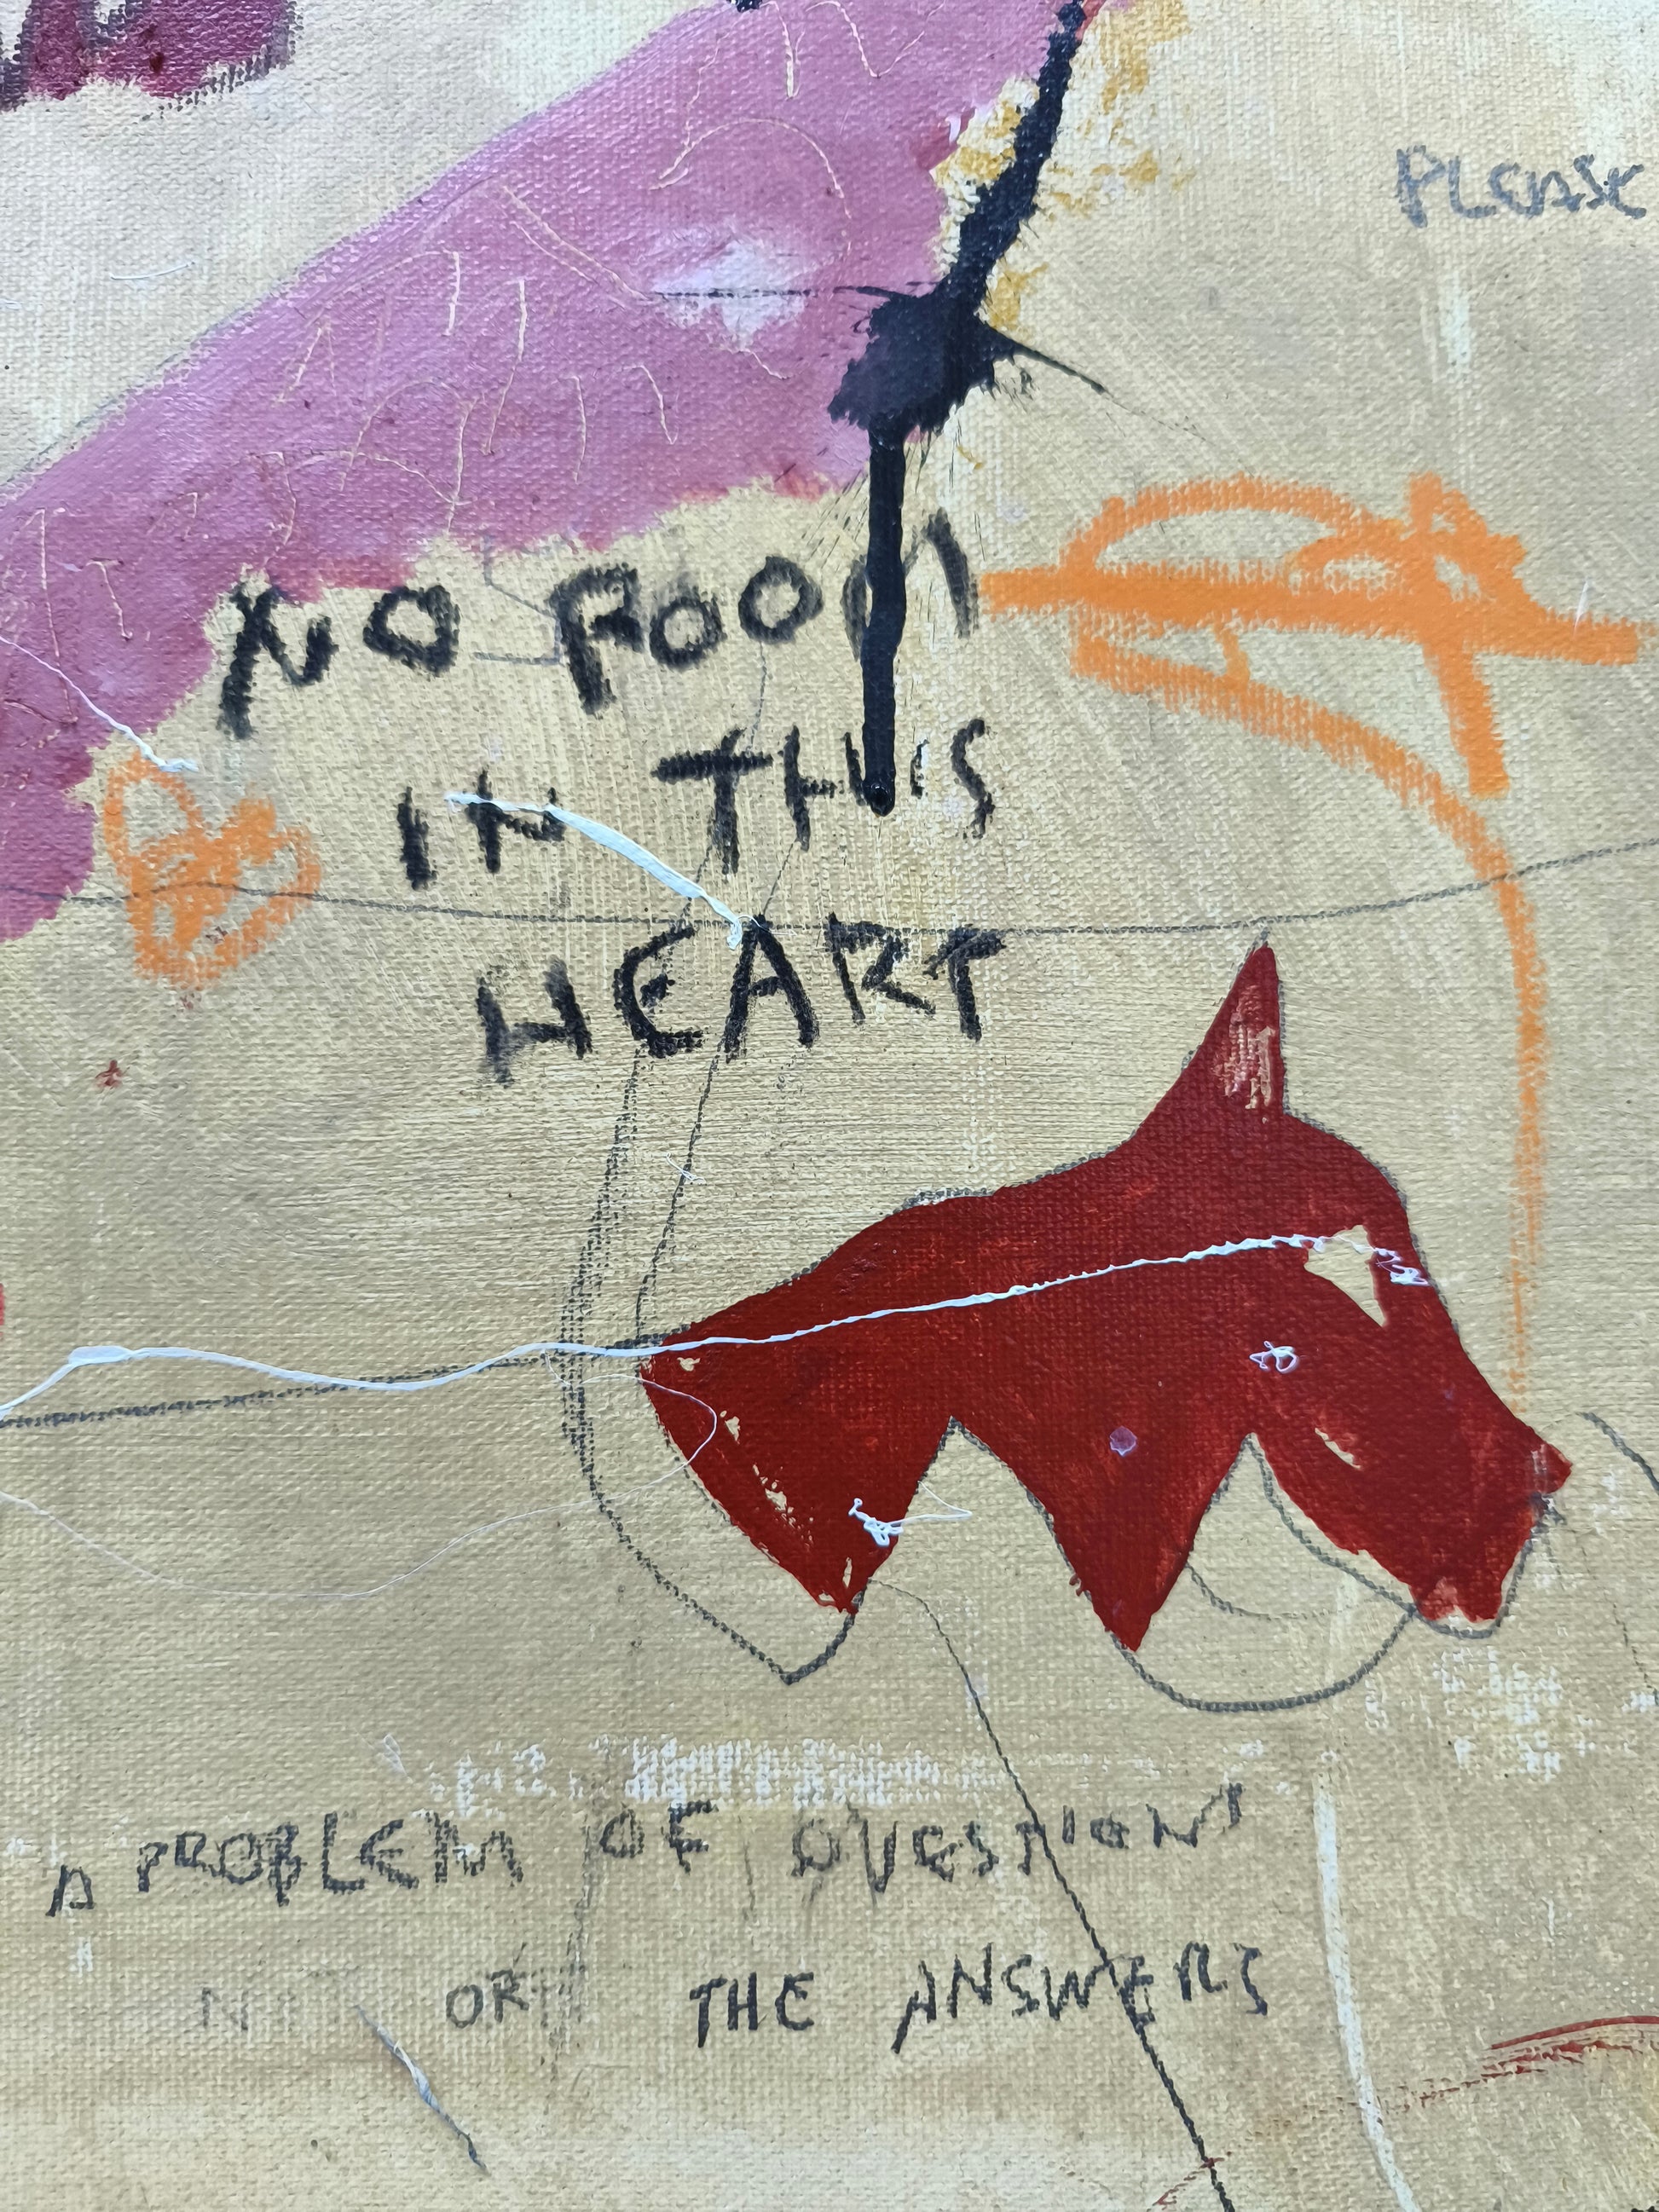 PLEASE
NO ROOM
IN THIS
HEART
A PROBLEM OF QUESTIONS
OR THE ANSWERS